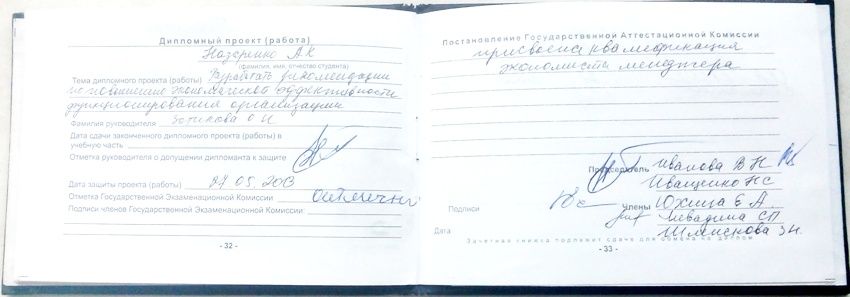 Дипломный проект (работа)
Назаренко А К
(фамилия, имя, отчество студента)
Тема дипломного проекта (работы) Разработать рекомендации
по повышению экономической эффективности
функционирования организации
Фамилия руководителя Зотикова О И
Дата сдачи законченного дипломного проекта (работы) в
учебную часть
Отметка руководителя о допущении дипломанта к защите
Дата защиты проекта (работы) 27 05 2013
Отметка Государственной Экзаменационной Комиссии отлично
Подписи членов Государственной Экзаменационной Комиссии:
- 32 -
Постановление Государственной Аттестационной Комиссии
присвоена квалификация
экономиста менеджера
Председатель Иванова В Н
Иващенко Н С
Подписи Члены Юхина Е А
СП
Дата
Зачетная книжка подлежит сдаче для обмена на диплом
- 33 -